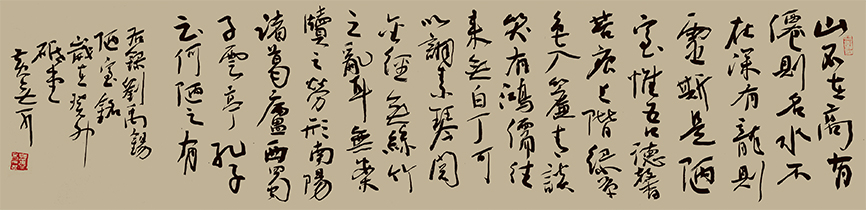 山不在高有
僊則名水不
在深有龍則
靈斯是陋
室惟吾德馨
苔痕上階綠草
色入簾青談
笑有鴻儒往
来無白丁可
以調素琴閱
金經無絲竹
之亂耳無案
牘之勞形南陽
諸葛廬西蜀
子雲亭孔子
云何陋之有
右錄劉禹錫
陋室銘
歲在癸卯